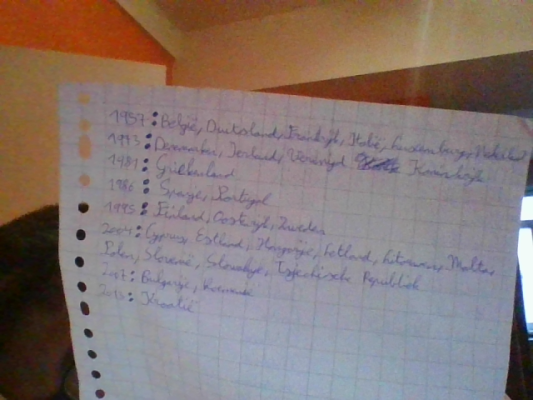 1957: België, Duitsland, Frankrijk, Italië, Luxemburg, Nederland
1973: Denemarken, Ierland, Verenigd Koninkrijk
1981: Griekenland
1986: Spanje, Portugal
1995: Finland, Oostenrijk, Zweden
2004: Cyprus, Estland, Hongarije, Letland, Litouwen, Malta,
Polen, Slovenië, Slowakije, Tsjechische Republiek
2007: Bulgarije, Roemenië
2013: Kroatië